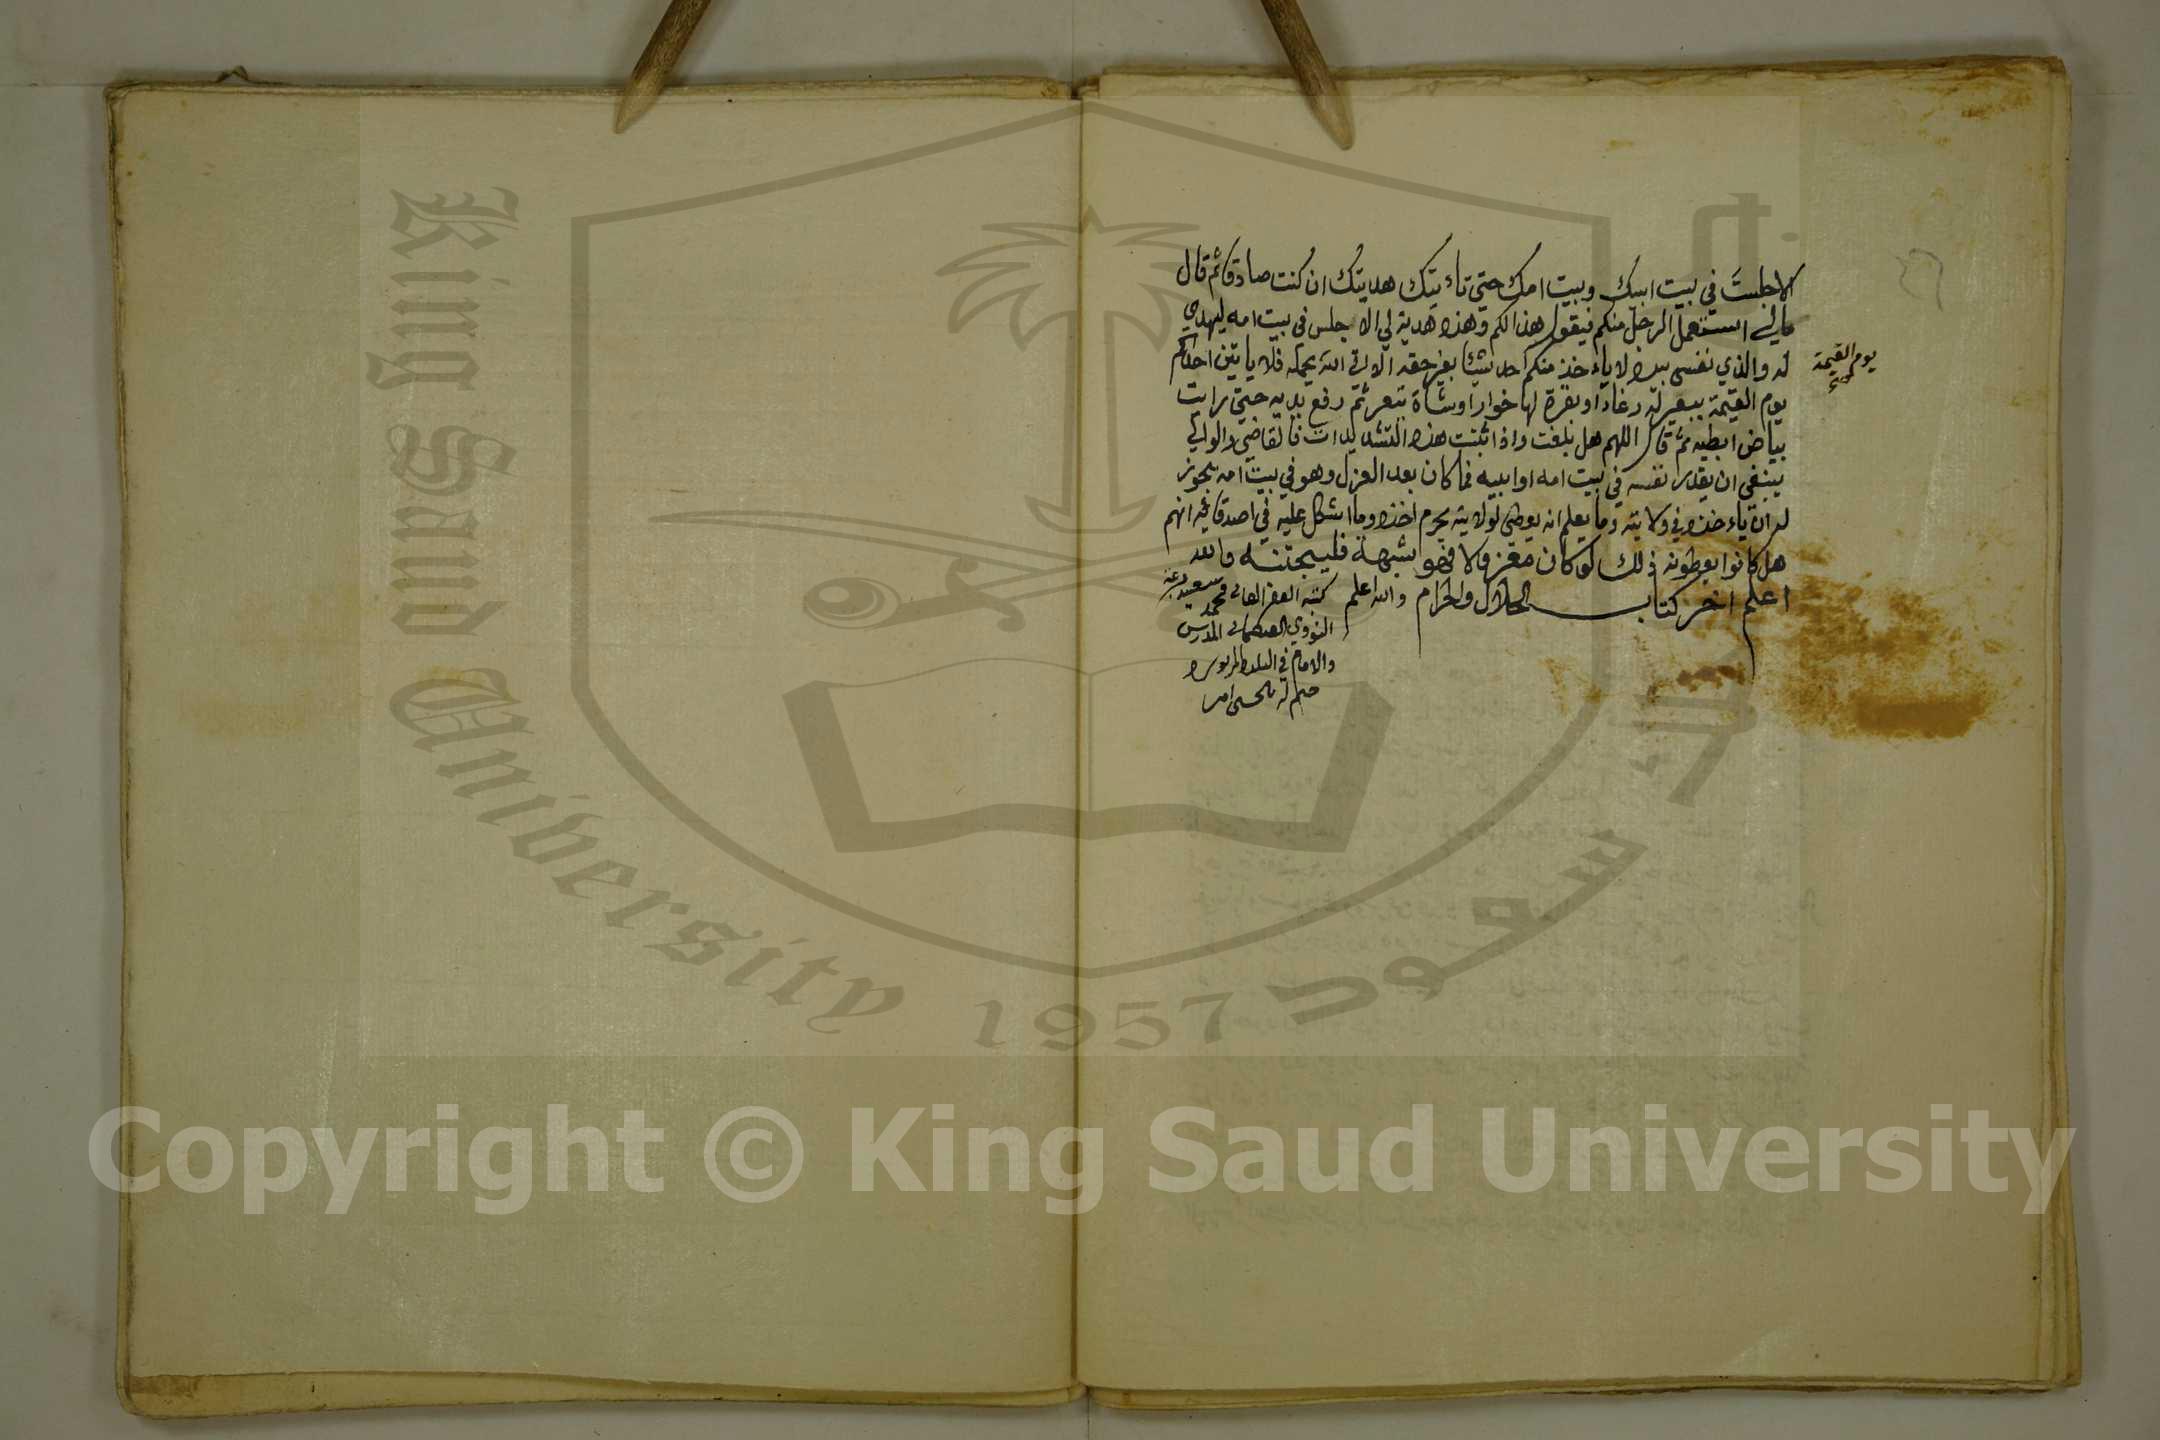 ٤٦
الا جلست في بيت ابيك وبيت امك حتى تاءتيتك هديتك ان كنت صادقا ثم قال
مالي استعمل الرجل منكم فيقول هذا لكم وهذه هدية لي الا جلس في بيت امه ليهدي
له والذي نفسي بيده لا ياءخذ منكم احد شيئا بغير حقه الا اتى الله يحمله فلا ياتين احدكم
يوم القيمة
يوم القيمة ببعير له رغاء او بقرة لها خوار او شاة تيعر ثم رفع يديه حتى رايت
بياض ابطيه ثم قال اللهم هل بلغت واذا ثبتت هذه التشديدات فالقاضي والوالي
ينبغي ان يقدر نفسه في بيت امه او ابيه فما كان بعد العزل وهو في بيت امه يجوز
له ان ياءخذه في ولايته وما يعلم انه يعطى لولايته يحرم اخذه وما اشكل عليه في اصدقائه انهم
هل كانوا يعطونه ذلك لو كان معزولا فهو شبهة فليجتنبه والله
اعلم اخر كتاب الحلال والحرام والله اعلم
كتبه الفقير محمد سعيد
النووي المدرس
والامام في البلد المزبوره
King Saud University
1957
Copyright © King Saud University